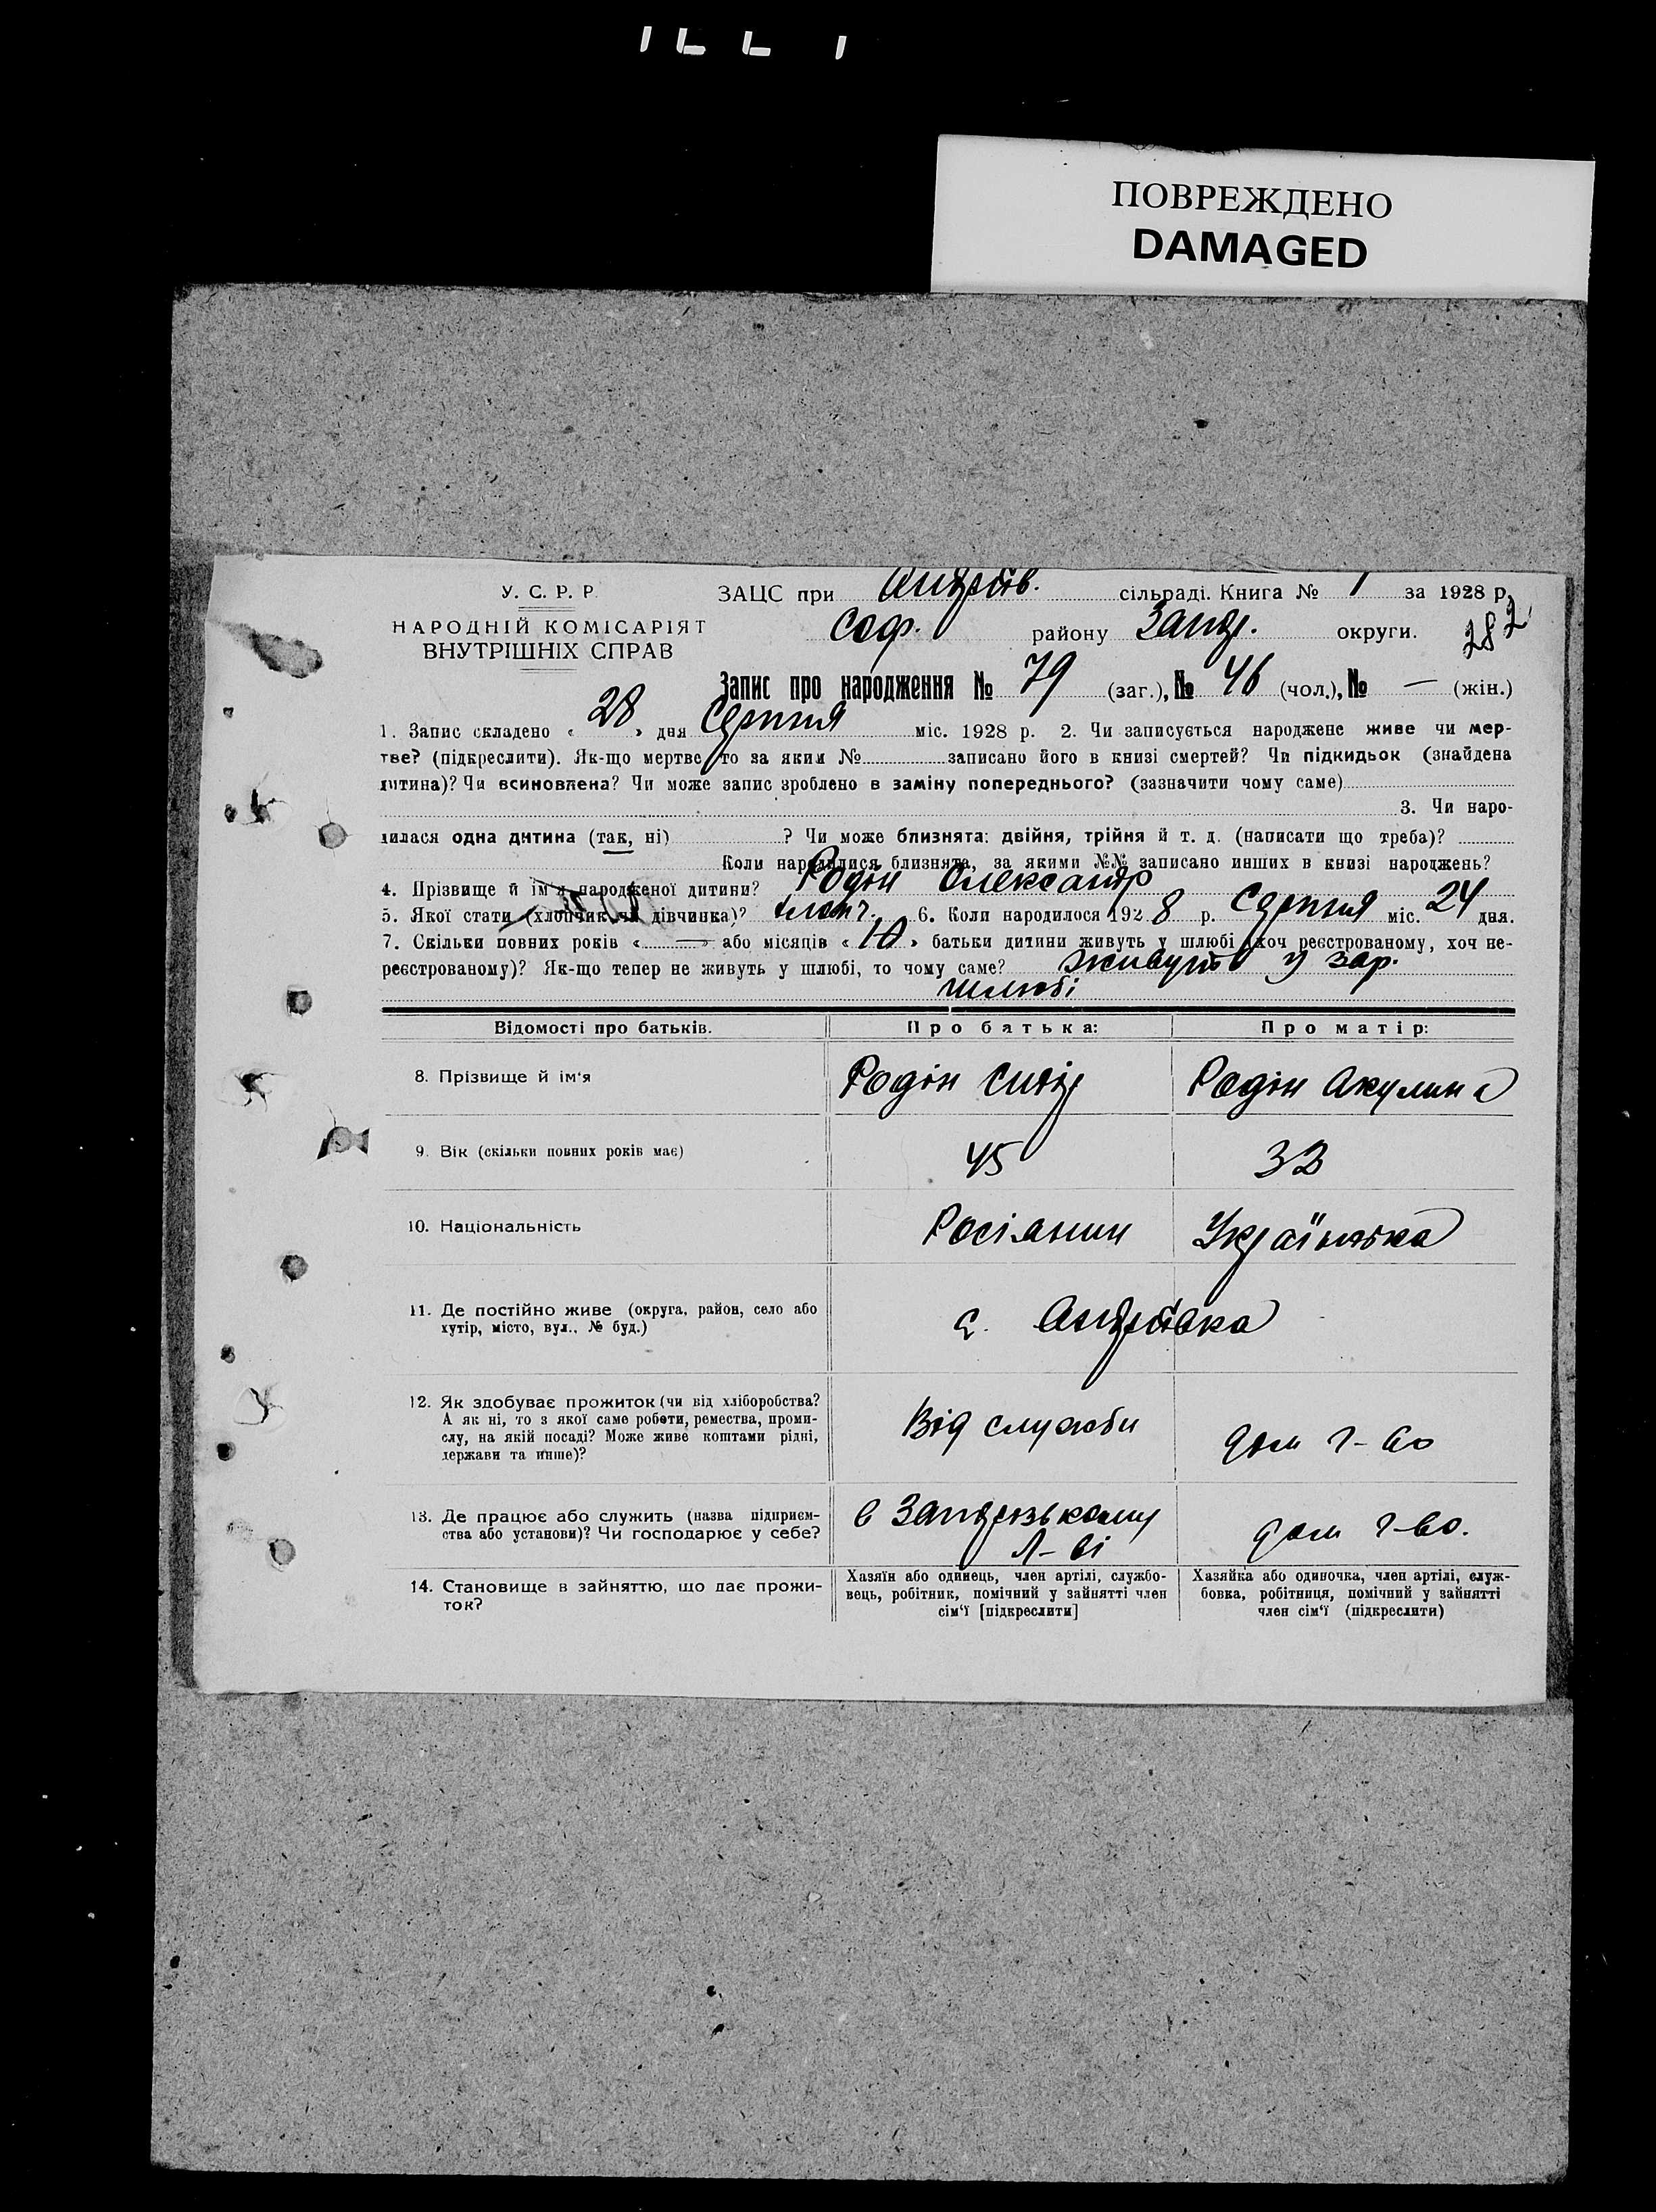 ПОВРЕЖДЕНО
DAMAGED
У. С. Р. Р.
НАРОДНІЙ КОМІСАРІЯТ
ВНУТРІШНІХ СПРАВ
ЗАЦС при Андріїв. сільраді. Книга № 1 за 1928 р.
Соф. району Запор. округи.
282
Запис про народження № 79 (заг.), № 46 (чол.), № — (жін.)
1. Запис складено « 28 » дня Серпня міс. 1928 р. 2. Чи записується народжене живе чи мер-
тве? (підкреслити). Як-що мертве то за яким № записано його в книзі смертей? Чи підкидьок (знайдена
дитина)? Чи всиновлена? Чи може запис зроблено в заміну попереднього? (зазначити чому саме)
3. Чи наро-
дилася одна дитина (так, ні) ? Чи може близнята: двійня, трійня й т. д. (написати що треба)?
Коли народилися близнята, за якими №№ записано инших в книзі народжень?
4. Прізвище й ім'я народженої дитини? Родін Олександр
5. Якої стати (хлопчик чи дівчинка)? хлопч. 6. Коли народилося 1928 р. Серпня міс. 24 дня.
7. Скільки повних років « — » або місяців « 10 » батьки дитини живуть у шлюбі (хоч реєстрованому, хоч не-
реєстрованому)? Як-що тепер не живуть у шлюбі, то чому саме? живуть у зар.
шлюбі
Відомості про батьків. Про батька: Про матір:
8. Прізвище й ім'я Родін Родін Акулина
9. Вік (скільки повних років має) 45 32
10. Національність Росіянин Українська
11. Де постійно живе (округа, район, село або
хутір, місто, вул., № буд.)
с. Андріївка
12. Як здобуває прожиток (чи від хліборобства?
А як ні, то з якої саме роботи, ремества, проми-
слу, на якій посаді? Може живе коштами рідні,
держави та инше)?
Від служби дом г-во
13. Де працює або служить (назва підприєм-
ства або установи)? Чи господарює у себе?
в
Л-ві дом г-во.
14. Становище в зайняттю, що дає прожи-
ток?
Хазяїн або одинець, член артілі, службо-
вець, робітник, помічний у зайнятті член
сім'ї [підкреслити]
Хазяйка або одиночка, член артілі, служ-
бовка, робітниця, помічний у зайнятті
член сім'ї (підкреслити)